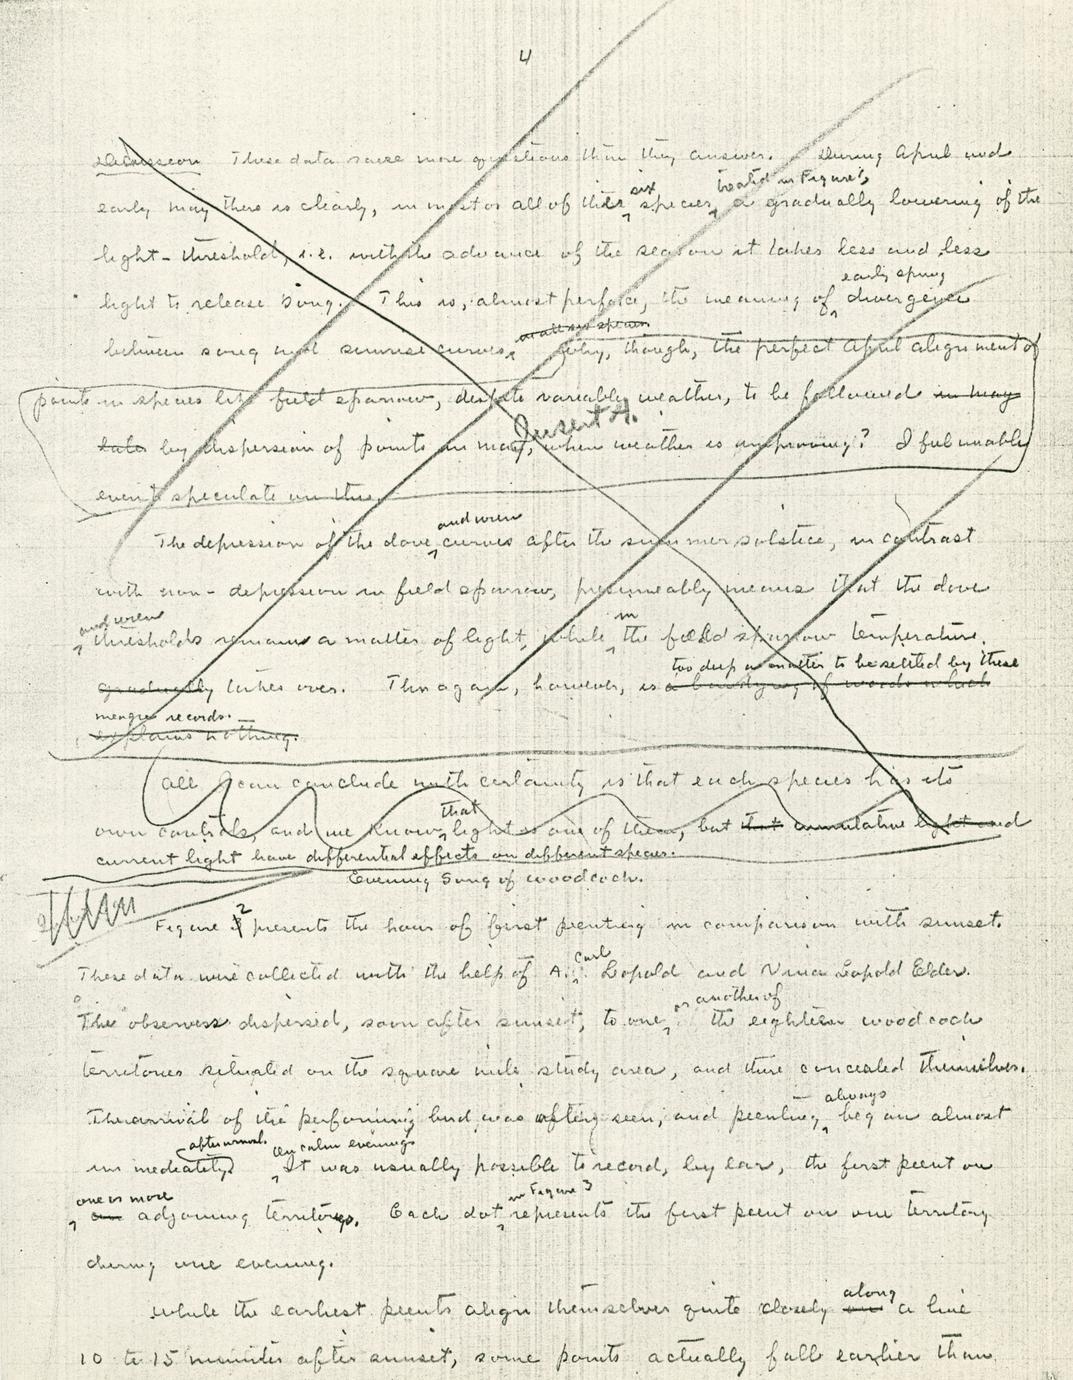 4
Discussion These data raise more questions than they answer. During April and
six treated in Figure 1,
early May there is clearly, in most or all of the species, a gradually lowering of the
light-threshold, i.e. with the advance of the season it takes less and less
early spring
light to release song. This is, almost perforce, the meaning of divergence
in all six species
between song and sunrise curves. Why, though, the perfect April alignment of
points in species like field sparrow, despite variable weather, to be followed in May
Insert A.
later by dispersion of points in May, when weather is improving? I feel unable
even to speculate on this.
and wren
The depression of the dove curves after the summer solstice, in contrast
with non-depression in field sparrow, presumeably means that the dove
and wren in
thresholds remains a matter of light, while the field sparrow temperature
too deep a matter to be settled by these
gradually takes over. This again, however, is a bandying of words which
meagre records.
explains nothing.
All I can conclude with certainty is that each species has its
that
own controls, and we know light is one of them, but that cumulative light and
current light have differential effects on different species.
Evening Song of woodcock.
2
Figure presents the hour of first peenting in comparison with sunset.
Carl
These data were collected with the help of A. Leopold and Nina Leopold Elder.
or another of
The observers dispersed, soon after sunset, to one the eighteen woodcock
territories situated on the square mile study area, and there concealed themselves.
always
The arrival of the performing bird was often seen, and peenting began almost
after arrival. On calm evenings
immediately It was usually possible to record, by ear, the first peent on
one or more in Figure 3
an adjoining territory. Each dot represents the first peent on one territory
during one evening.
along
While the earliest peents align themselves quite closely on a line
10 to 15 minutes after sunset, some points actually fall earlier than